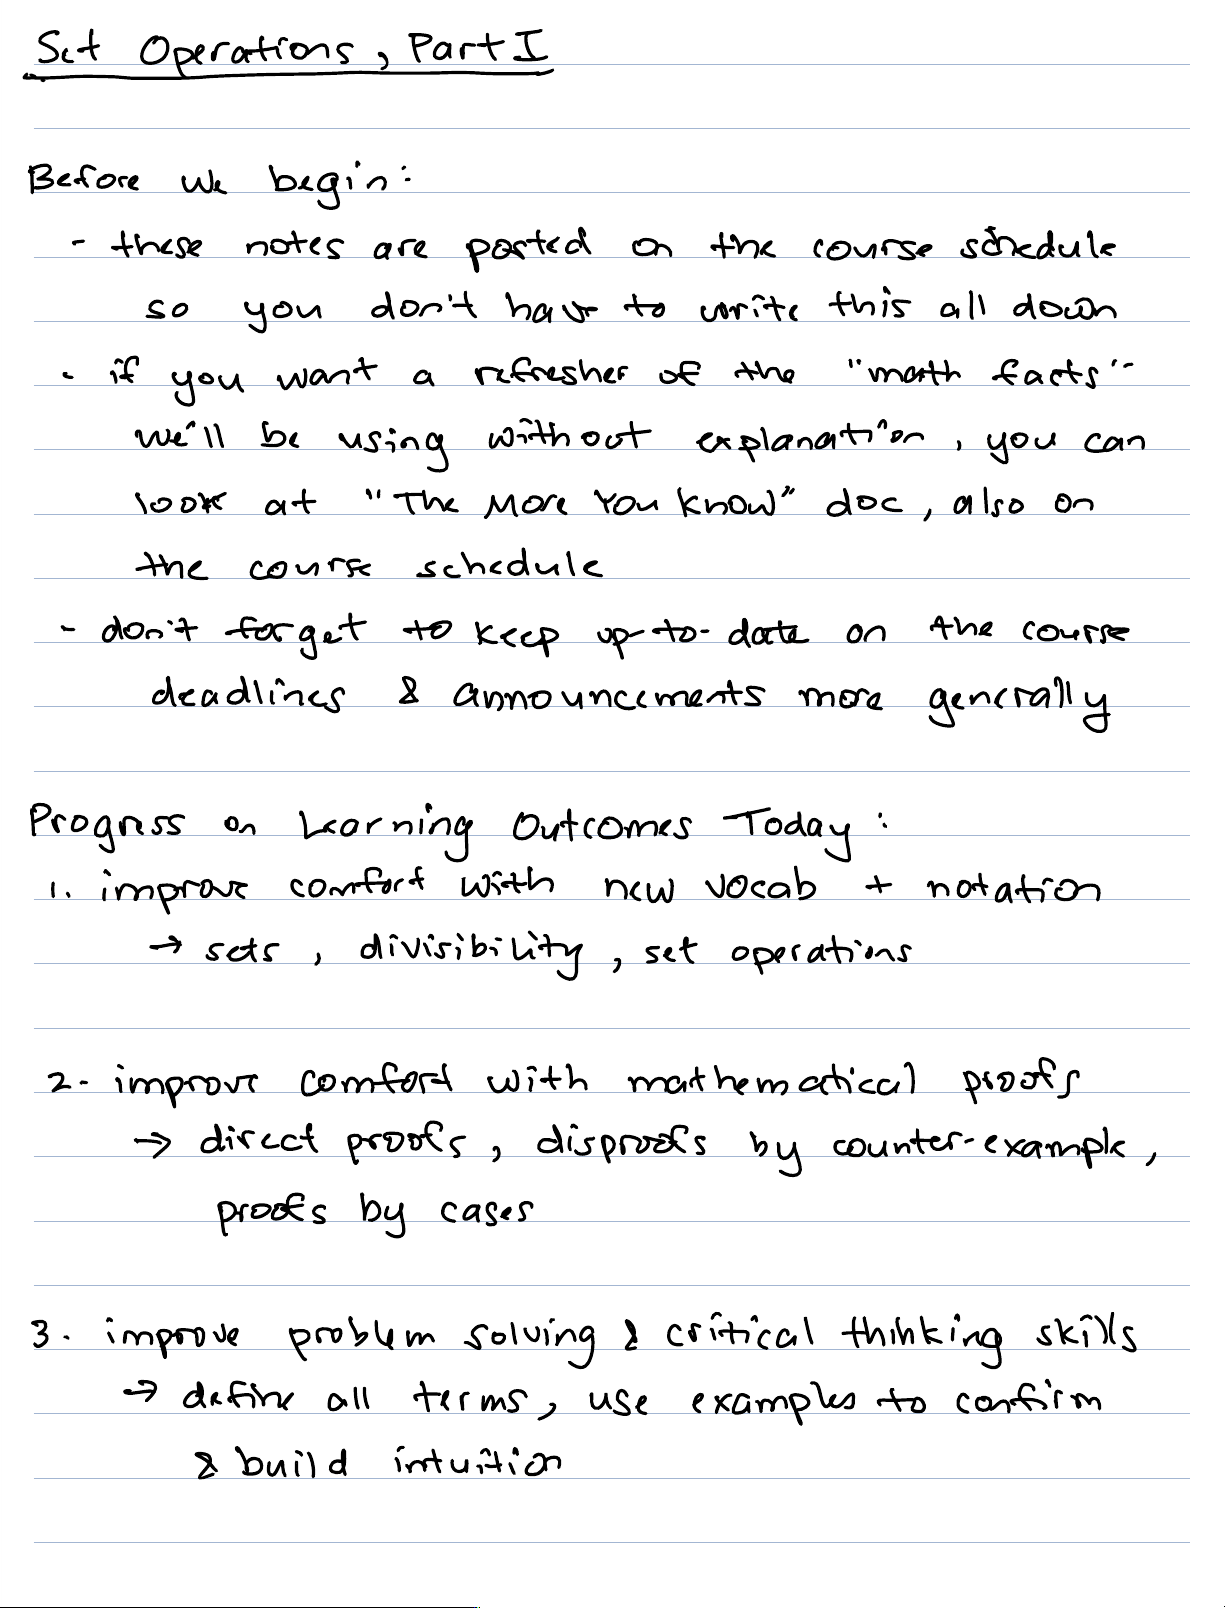 Set Operations, Part I
Before we begin:
- these notes are posted on the course schedule
so you don't have to write this all down
- if you want a refresher of the "math facts"
we'll be using without explanation, you can
look at "The More You Know" doc, also on
the course schedule
- don't forget to keep up-to-date on the course
deadlines & announcements more generally
Progress on Learning Outcomes Today:
1. improve comfort with new vocab + notation
→ sets, divisibility, set operations
2. improve comfort with mathematical proofs
→ direct proofs, disproofs by counter-example,
proofs by cases
3. improve problem solving & critical thinking skills
→ define all terms, use examples to confirm
& build intuition